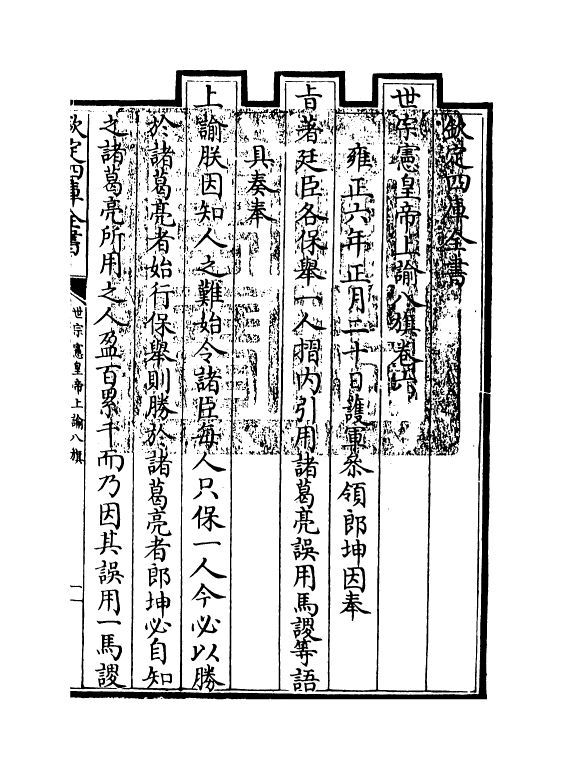 欽定四庫全書
世宗憲皇帝上諭八旗卷六
雍正六年正月二十日護軍叅領郎坤因奉
㫖著廷臣各保舉一人摺内引用諸葛亮誤用馬謖等語
具奏奉
上諭朕因知人之難始令諸臣每人只保一人今必以勝
於諸葛亮者始行保舉則勝於諸葛亮者郎坤必自知
之諸葛亮所用之人盈百累千而乃因其誤用一馬謖
欽定四庫全書
世宗憲皇帝上諭八旗
一